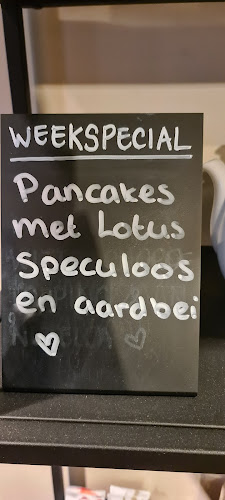 WEEKSPECIAL
Pancakes
met Lotus
Speculoos
en aardbei